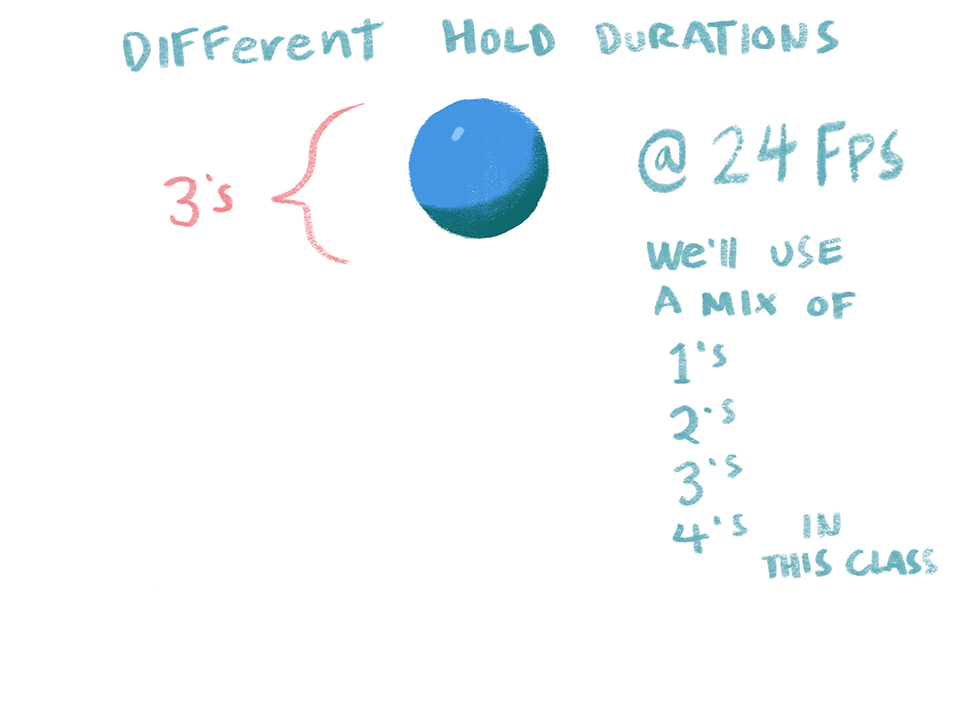 DIFFerenT HOLD DURATIONS
3's
@ 24 FPS
We'll USE
A MIX OF
1's
2's
3's
4's IN
THIS CLASS